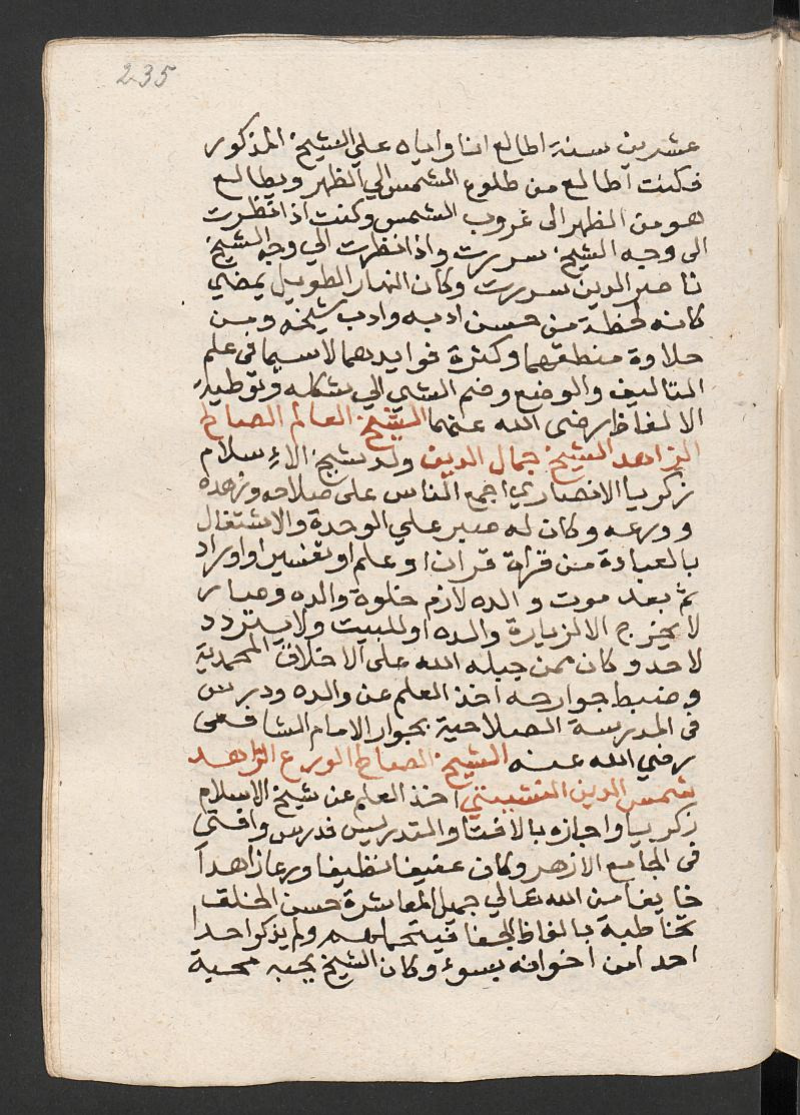 235
عشرين سنة اطالع انا واياه علي الشيخ المذكور
فكنت اطالع من طلوع الشمس الي الظهر ويطالع
هو من الظهر الى غروب الشمس وكنت اذا نظرت
الى وجه الشيخ سررت واذا نظرت الي وجه الشيخ
ناصر الدين سررت وكان النهار الطويل يمضي
كانه لحظة من حسن ادبه وادب شيخه ومن
حلاوة منطقهما وكثرة فوايدهما لاسيما فى علم
التاليف والوضع وضم الشي الي شكله وتوطية
الالفاظ رضى الله عنهما الشيخ العالم الصالح
الزاهد الشيخ جمال الدين ولد شيخ الاسلام
زكريا الانصاري اجمع الناس على صلاحه وزهده
وورعه وكان له صبر علي الوحدة والاشتغال
بالعبادة من قراة قران او علم او تفسير او اوراد
ثم بعد موت والده لازم خلوة والده وصار
لا يخرج الا لزيارة والده او للبيت ولا يتردد
لاحد وكان ممن جبله الله على الاخلاق المحمدية
وضبط جوارحه اخذ العلم عن والده ودرس
فى المدرسة الصلاحية بجوار الامام الشافعى
رضي الله عنه الشيخ الصالح الورع الزاهد
شمس الدين اخذ العلم عن شيخ الاسلام
زكريا واجازه بالافتا والتدريس فدرس وافتى
فى الجامع الازهر وكان عفيفا نظيفا ورعا زاهدا
خايفا من الله تعالي جميل المعاشرة حسن الخلق
تخاطبه بالفاظ الجفا فيتحملهم ولم يذكر احدا
احدا من اخوانه بسوء وكان الشيخ يحبه محبة